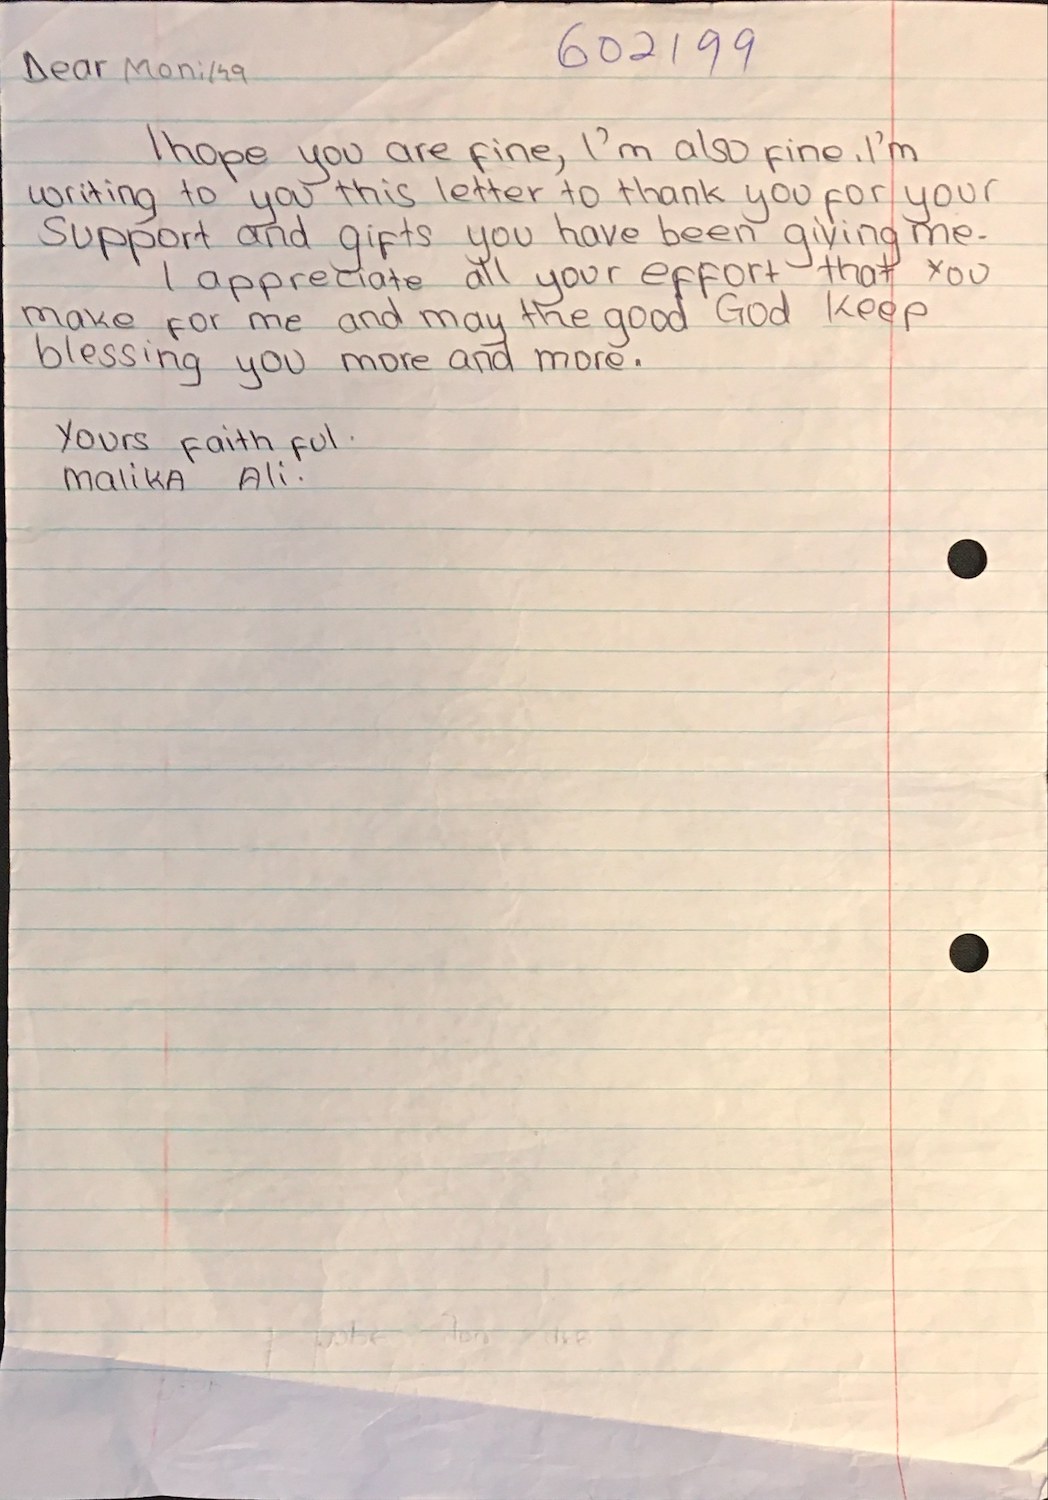 602199
Dear Monika
I hope you are fine, I'm also fine. I'm
writing to you this letter to thank you for your
Support and gifts you have been giving me.
I appreciate all your effort that you
make for me and may the good God keep
blessing you more and more.
Yours Faith ful.
Malika Ali.